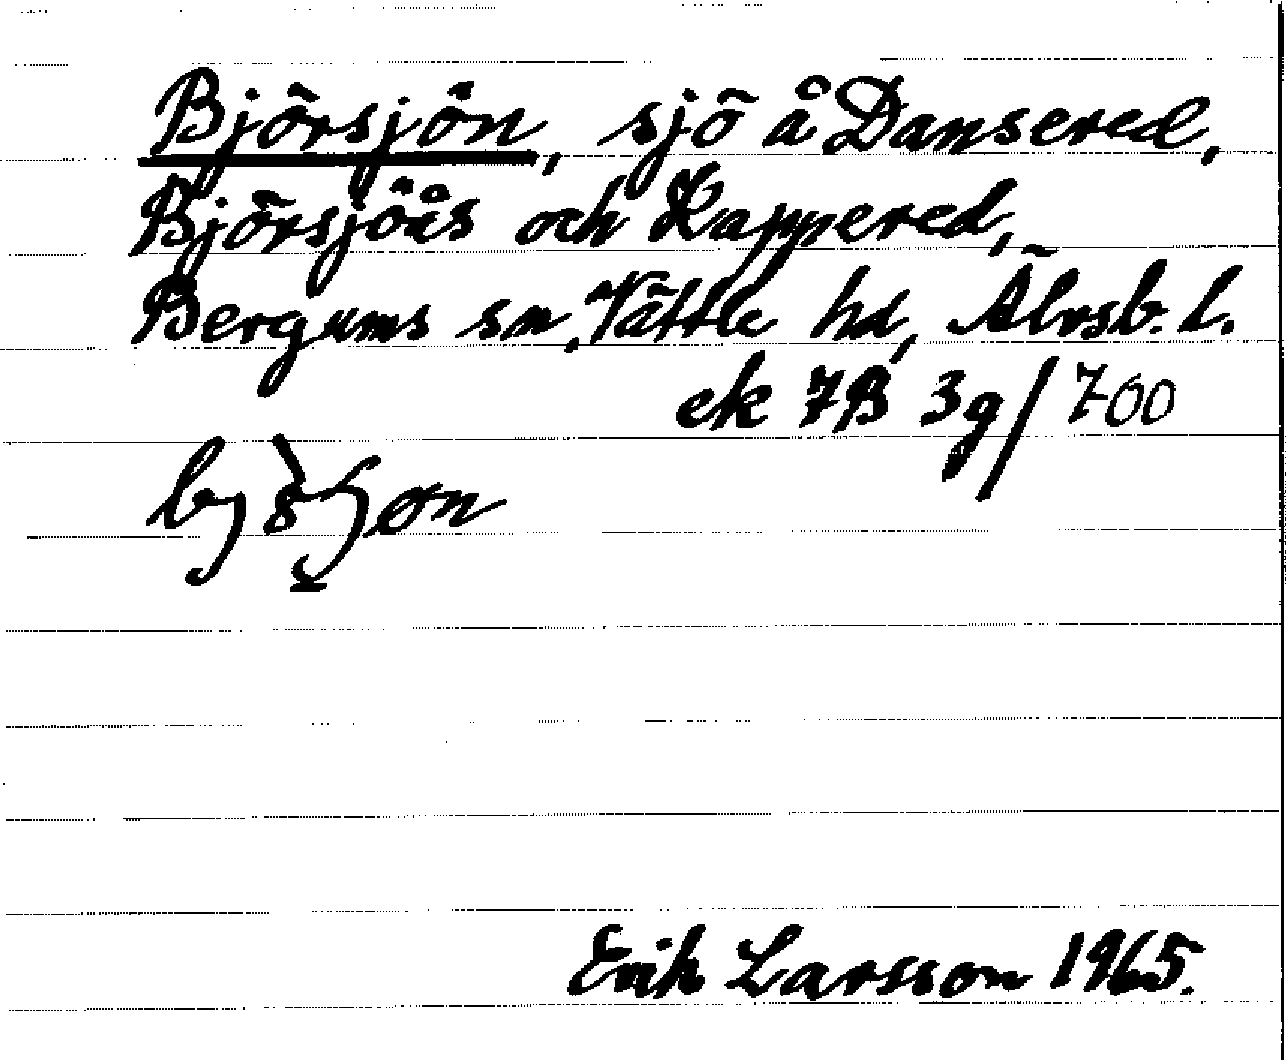 Björsjön, sjö å Dansered,
Björsjöås och Kappered,
Bergums sn, Vättle hd, Älvsb. l.
ek 7B 3g/700
Erik Larsson 1965.